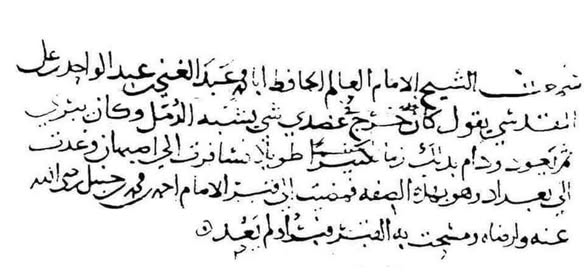 سمعت الشيخ الامام العالم الحافظ ابا محمد عبد الغني بن عبد الواحد بن علي
المقدسي يقول كان خرج في عضدي شي يشبه الدمل وكان يبرى
ثم يعود ودام بذلك زمانا طويلا فسافرت الى اصبهان وعدت
الى بغداد وهو بهذه الصفه فمضيت الى قبر الامام احمد بن محمد بن حنبل رضي الله
عنه وارضاه ومسحت به القبر فبرا ولم يعد